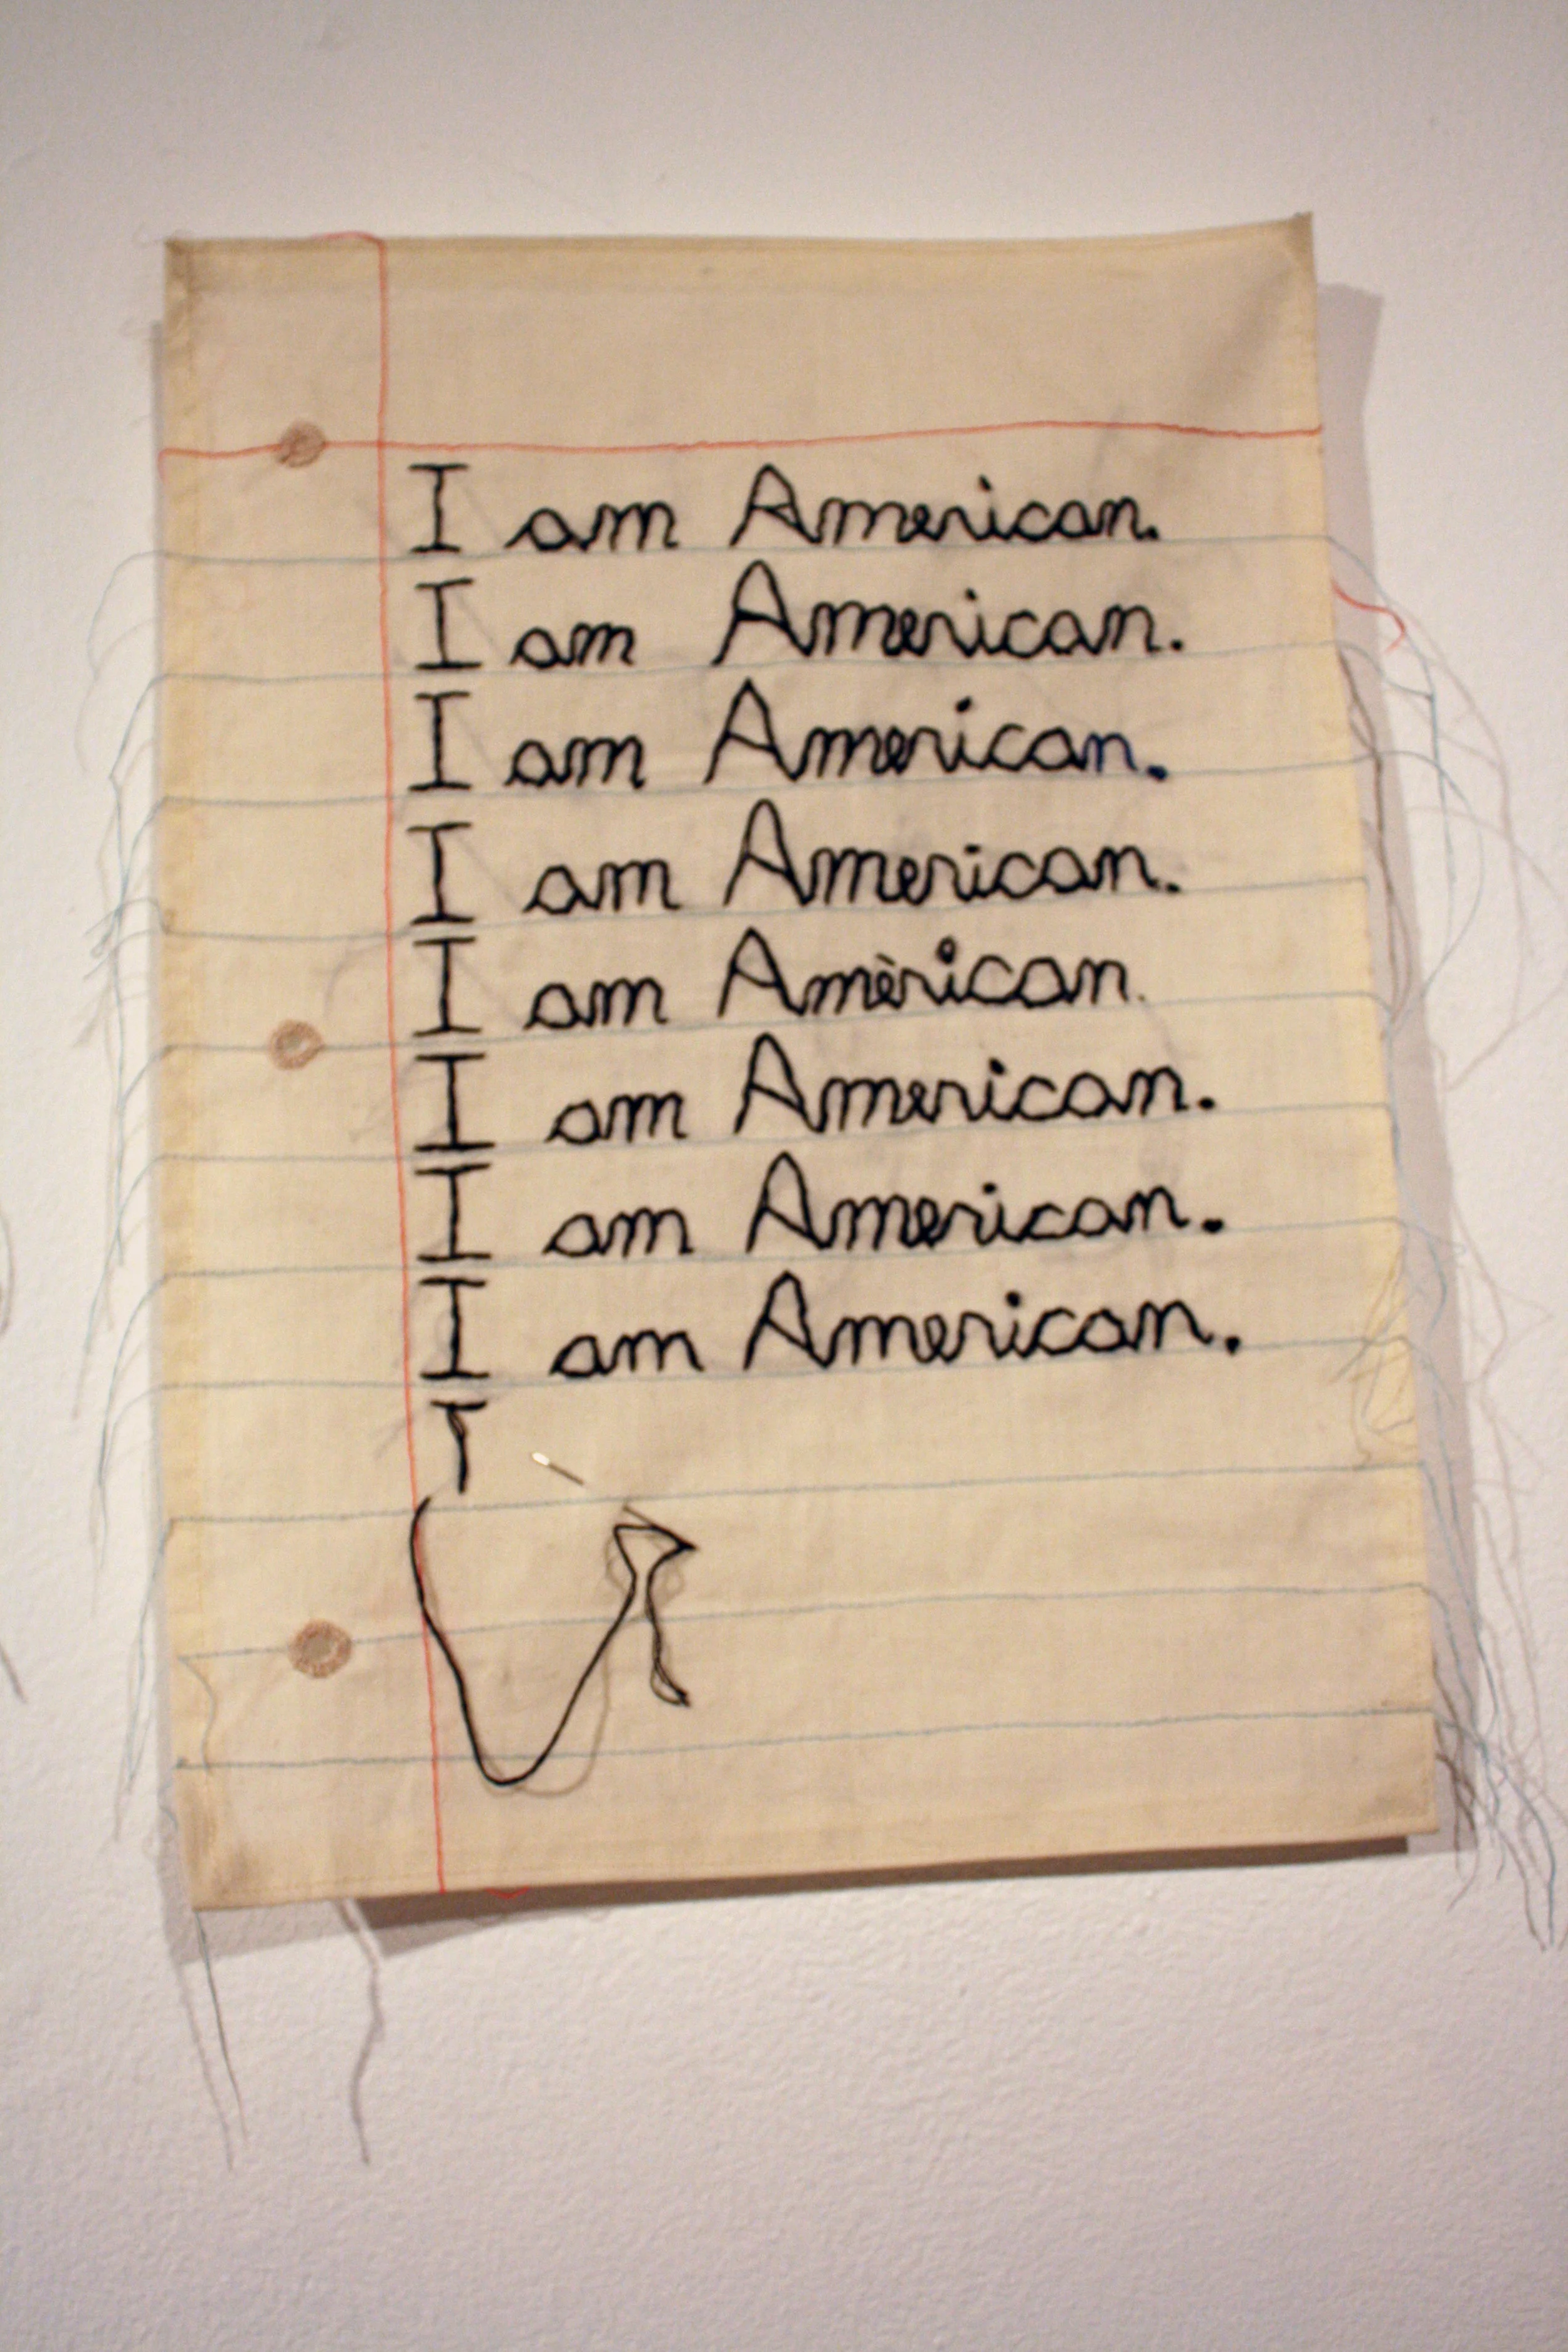 I am American.
I am American.
I am American.
I am American.
I am Amèrican.
I am American.
I am American.
I am American.
I